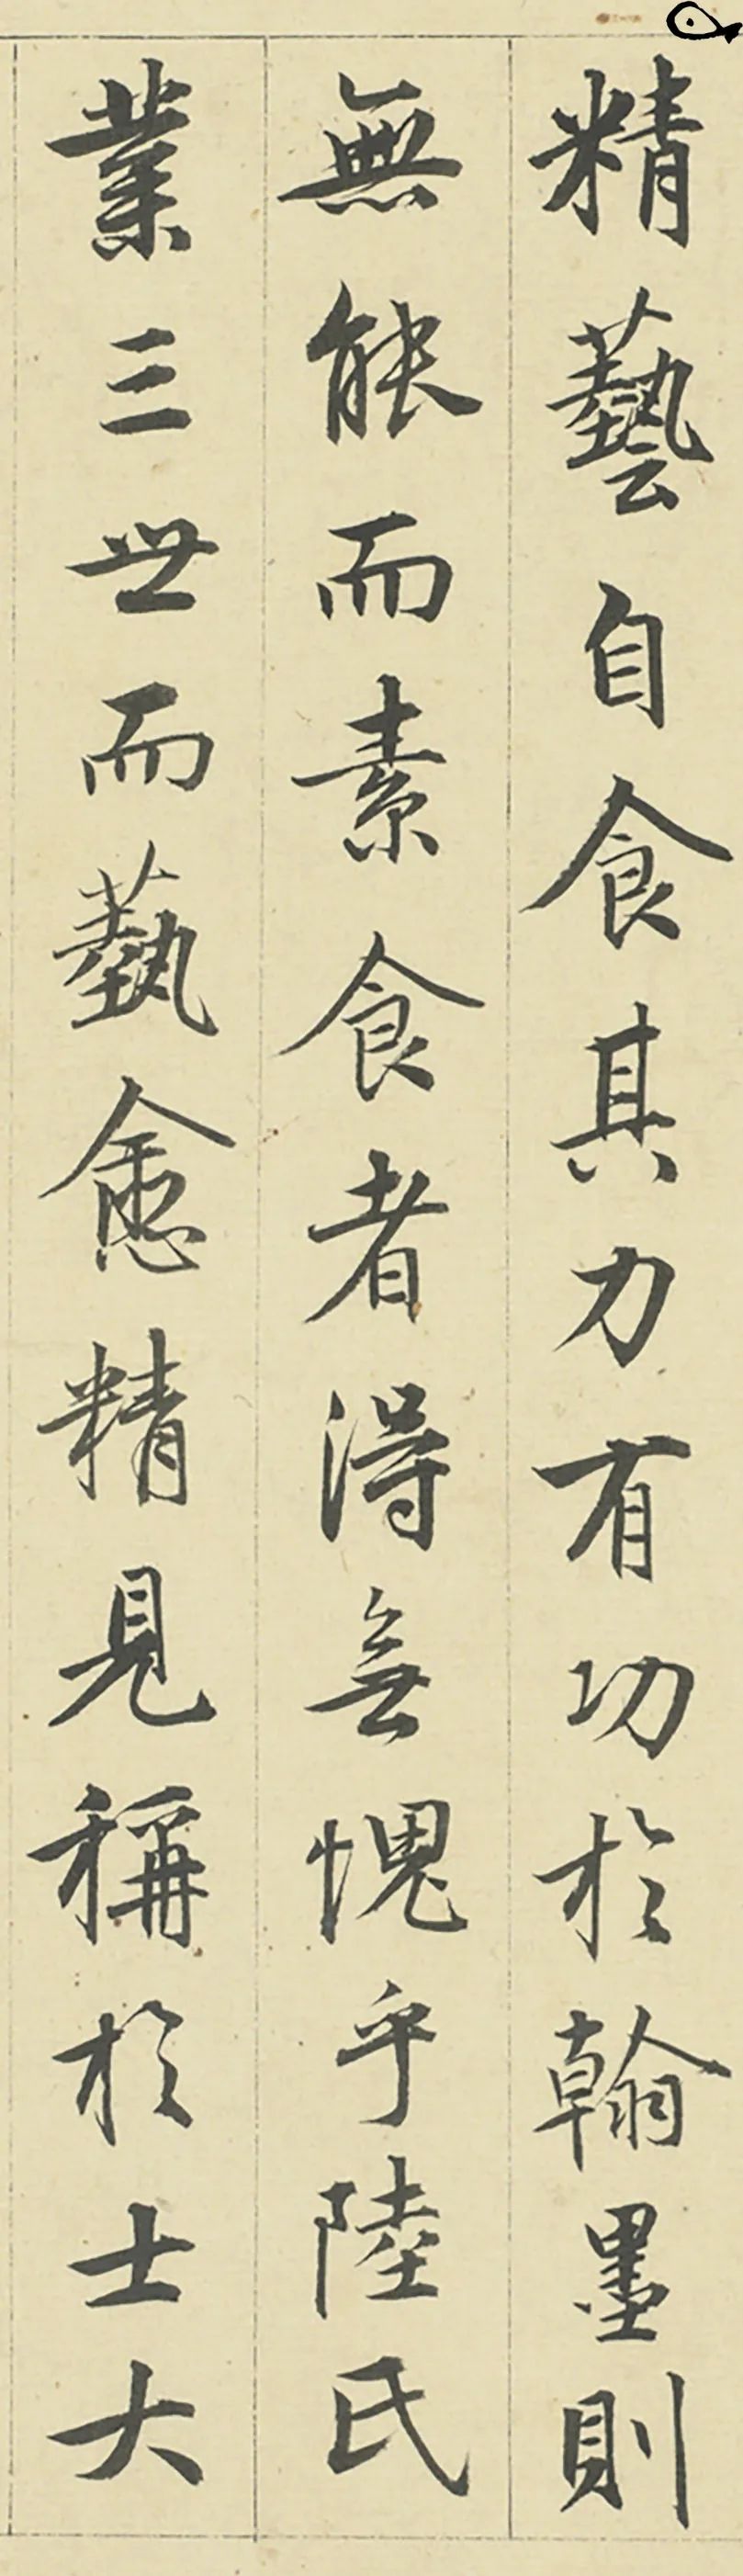 精藝自食其力有功於翰墨則
無能而素食者得無愧乎陸氏
業三世而藝愈精見稱於士大